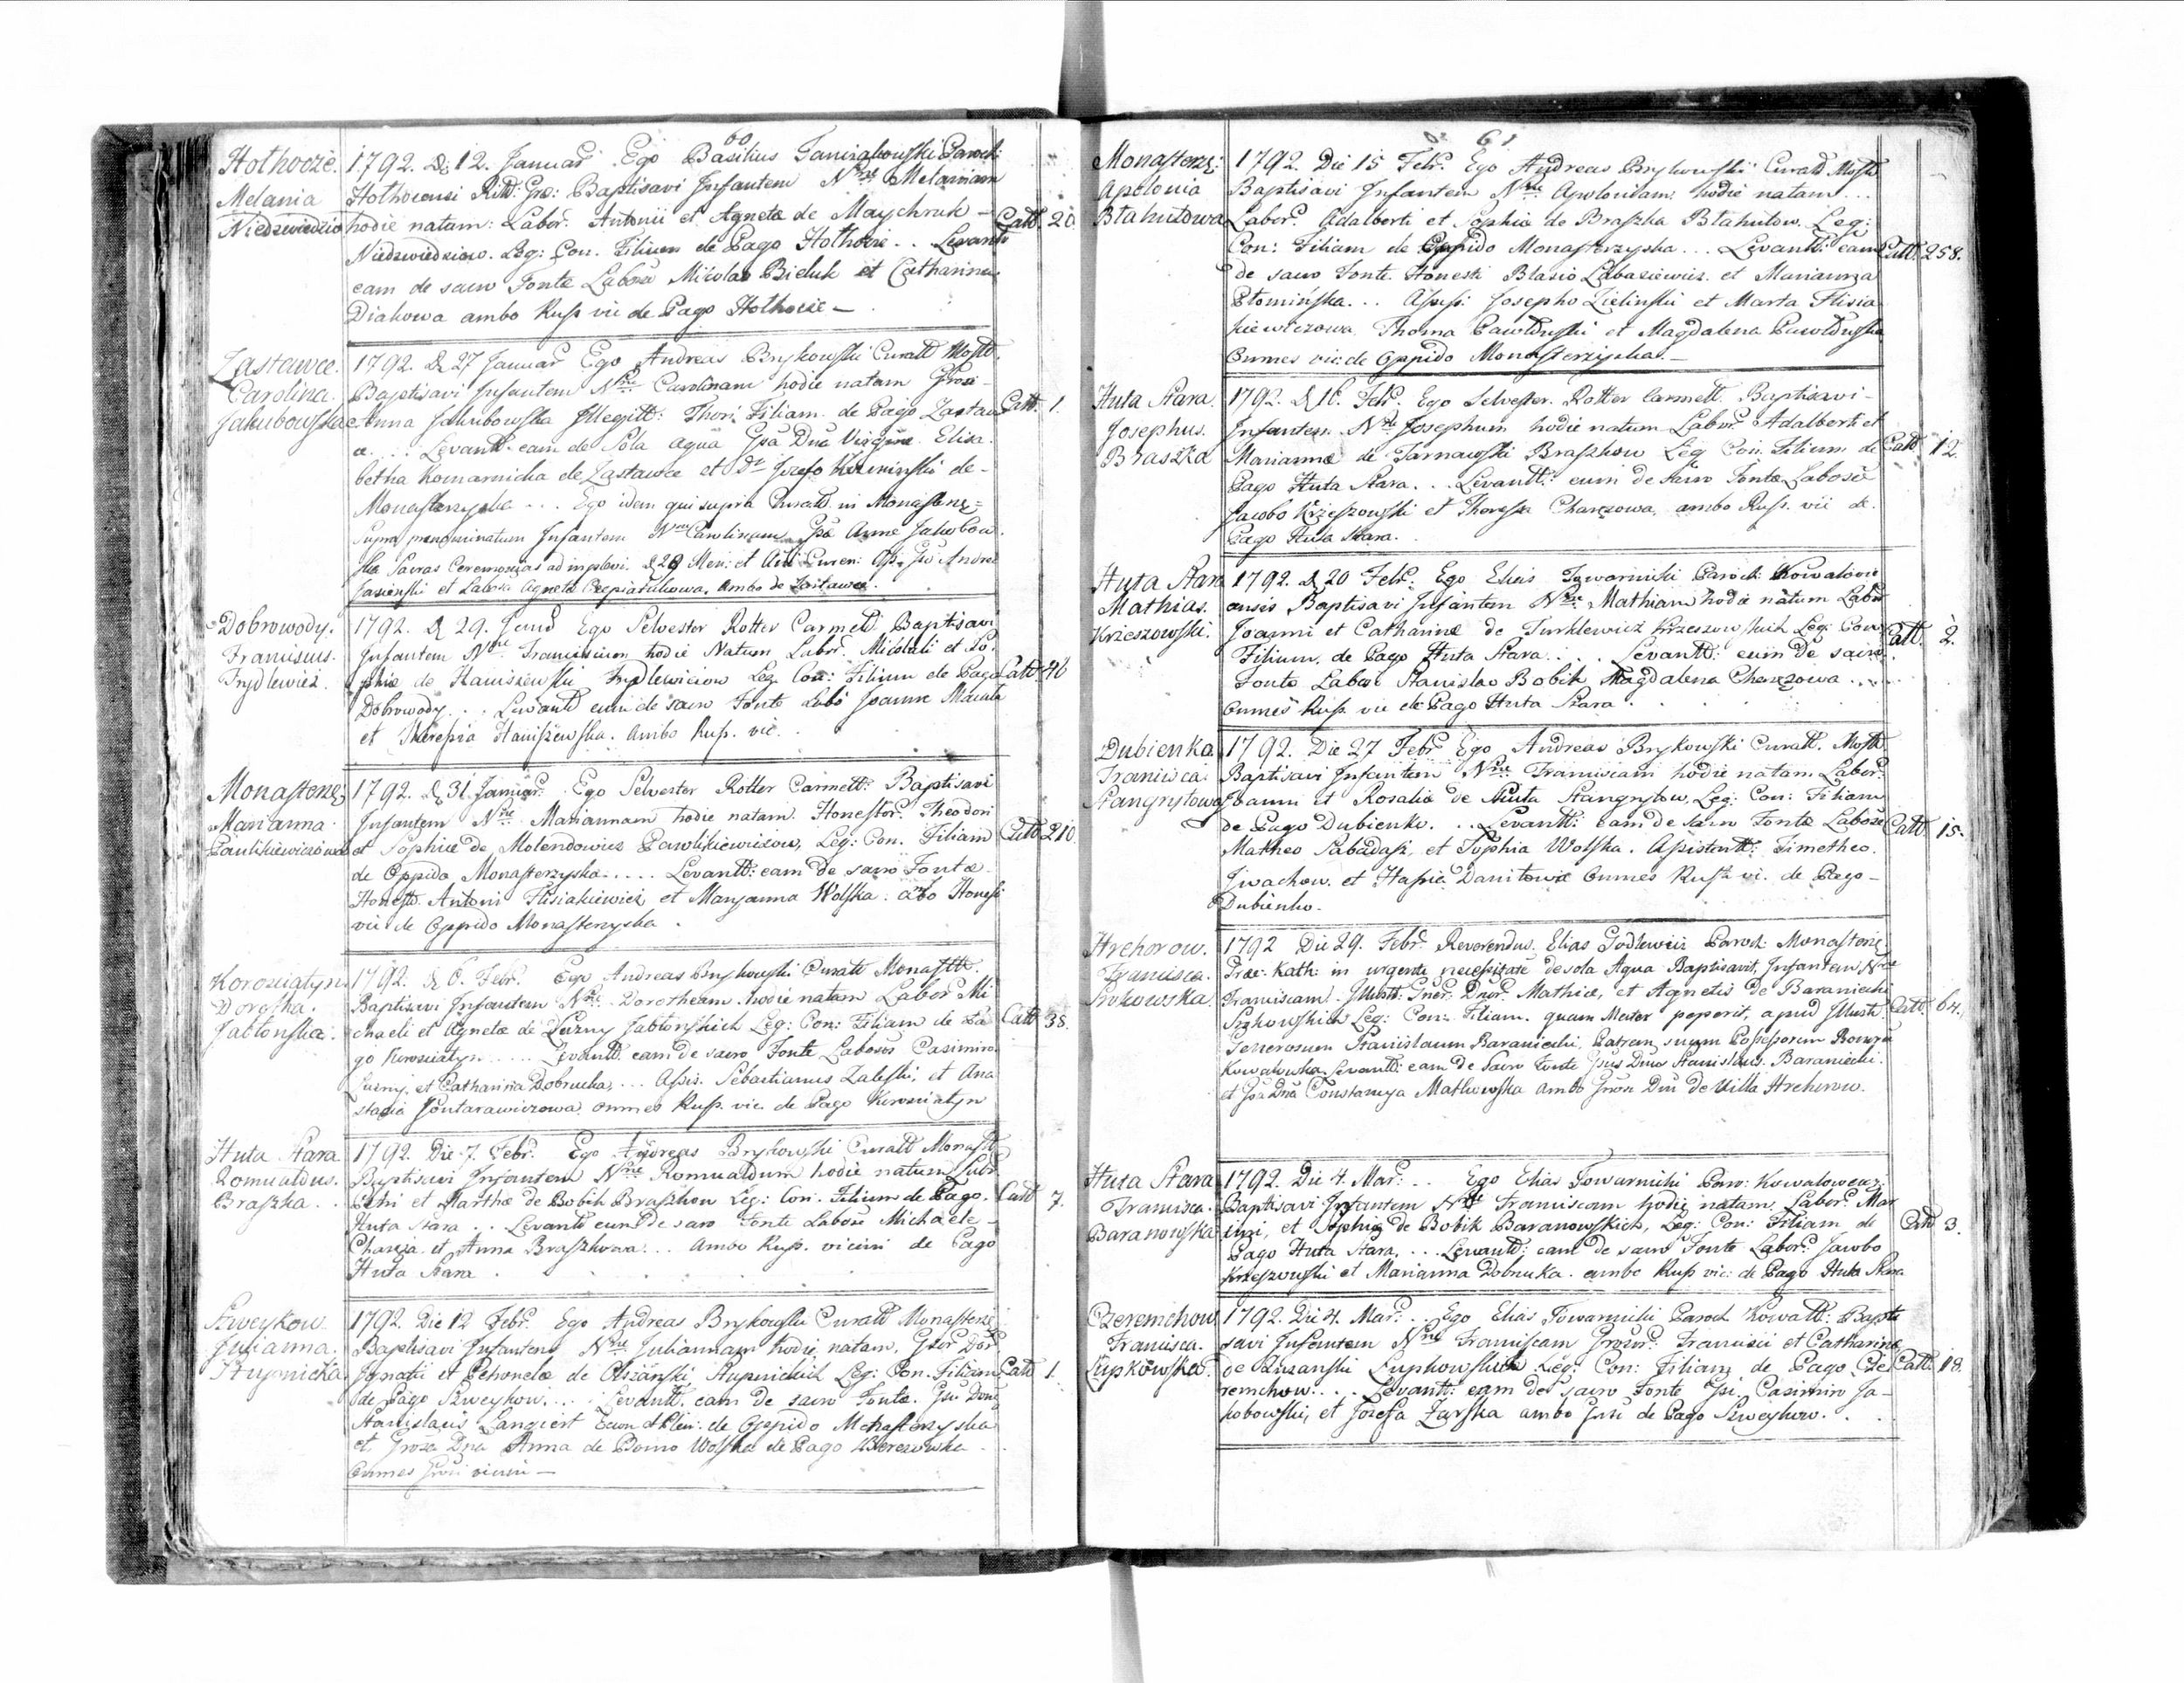 60
Hothocze.
Melania
Niedzwiedzio
1792. D. 12. Januar. Ego Basilius Parochi
Hothocensi Ritt: Gre: Baptisavi Infantem Nne Melaniam
hodie natam: Labor. Antonii et Agnetæ de Maychruk –
Niedzwiedziow. Leg: Con. Filiam de Pago Hothocze .. Levantt
eam de sacro Fonte Labosi Micolao Bieluk et Catharina
Diakowa ambo Rusz vic de Pago Hothocze –
Catt. 20.
Zastawce.
Carolina.
Jakubowska
1792. D. 27 Januar Ego Andreas Brykowski Curatt Mostt.
Baptisavi Infantem Nne Carolinam hodie natam
Anna Jakubowska Illegitt: Thori Filiam de Pago Zastaw
ce ... Levantt. eam de Sola aqua Gsa Dna Virgine Elisa
betha Komarnicka de Zastawce et Dr Jozefo de –
Monasterzyska ... Ego idem qui supra Curatt in Monasterz=
supra prænominatum Infantem Nne Carolinam Annæ Jakubow
ska Sacras Ceremonias adimplevi. D. 28 Men: et Andrea
Jasienski et Agneta ambo de Zastawce.
Catt. 1.
Dobrowody.
Franciscus.
Frydlewicz.
1792. D. 29. Ego Selvester Rotter Carmett Baptisavi
Infantem Nne Franciscum hodie Natum Labor. Micolali et So.
phiæ de Haniszewski Frydlewiciow Leg. Con: Filium de Pago
Dobrowody ... Levantt eum de sacro Fonte Labo Joanne
et Theresia Haniszewska. Ambo Rusz. vic.
Catt. 46
Monasterz.
Marianna
Pawlikiewiczowna
1792. D. 31. Januar. Ego Selvester Rotter Carmett: Baptisavi
Infantem Nne Mariannam hodie natam Honestor. Theodori
et Sophiæ de Molendowicz Pawlikiewiciow, Leg: Con. Filiam
de Oppido Monasterzyska .... Levantt: eam de sacro Fonte
Honestt. Antoni Flisiakiewicz et Maryanna Wolska: abo Honest
vic de Oppido Monasterzyska.
Catt. 210
Korosciatyn
Dorotha.
Jabłonska.
1792. D. 6. Febr. Ego Andreas Brykowski Curatt Monastt.
Baptisavi Infantem Nne Dorotheam hodie natam Labor Mi
chaeli et Agnetæ de Luzny Jabłonskich Leg: Con: Filiam de Pa
go Korosciatyn ..... Levantt. eam de sacro Fonte Labosus Casimiro
Luzny, et Catharina Dobrucka, ... Assis. Sebastianus Zaleski, et Ana
stazia Omnes Rusz. vic. de Pago Korosciatyn
Catt 38.
Huta Stara.
Romualdus.
Braszka.
1792. Die 7. Febr. Ego Andreas Brykowski Curatt Monastt
Baptisavi Infantem Nne Romualdum hodie natum Labr
Petri et Marthæ de Bobik Braszkow Leg: Con. Filium de Pago.
Huta Stara .. Levantt eum de sacro Fonte Labosi Michaele –
et Anna Braszkowa ... Ambo Rusz. vicini de Pago
Huta Stara
Catt 7.
Szweykow
Julianna.
Stupnicka
1792. Die 12 Febr. Ego Andreas Brykowski Curatt Monasterz
Baptisavi Infantem Nne Juliannam hodie natam,
Ignatii et Petronelæ de Olszanski, Stupnickich Leg: Con. Filiam
de Pago Szweykow. ... Levantt. eam de sacro Fonte.
Stanislaus Langiert de Oppido Monasterzyska
et Dna Anna de Domo Wolska de Pago Berezowka
Omnes vicini –
Catt 1
61
Monasterz:
Apolonia
Błahutowa
1792. Die 15 Febr. Ego Andreas Brykowski Curatt Mostt
Baptisavi Infantem Nne Apoloniam hodie natam ...
Labor. Adalberti et Sophiæ de Braszka Błahutow. Leg:
Con: Filiam de Oppido Monasterzyska ... Levantt: eam
de sacro Fonte Honesti Blasio Labaziewicz. et Marianna
Słomińska ... Assist: Josepho Zielinski et Marta Flisia
kiewiczowa. Thoma et Magdalena
Omnes vic: de Oppido Monasterzyska. –
Catt. 258.
Huta Stara.
Josephus.
Braszka
1792. D. 16. Febr. Ego Selvester. Rotter Carmett. Baptisavi –
Infantem Nne Josephum hodie natum Labor. Adalberti et
Mariannæ de Tarnawski Braszkow Leg Con. Filium de
Pago Huta Stara ... Levantt: eum de Sacro Fonte Labosi
Jacobo Krzeszowski et Theresa ambo Rusz. vic de.
Pago Huta Stara.
Catt 12.
Huta Stara
Mathias.
Krzeszowski.
1792. D. 20 Febr: Ego Elias Towarnicki Paroch: Kowalovi
ensis Baptisavi Infantem Nne Mathiam hodie natum Labor
Joanni et Catharinæ de Turklewicz Krzeszowskich Leg: Con
Filium. de Pago Huta Stara ... Levantt: eum de sacro
Fonte Labosi Stanislao Bobik Magdalena ...
Omnes Rusz. vic de Pago Huta Stara.
Catt. 2.
Dubienka
Francisca.
Stangrytowa
1792. Die 27 Febr. Ego Andreas Brykowski Curatt. Mostt
Baptisavi Infantem Nne Franciscam hodie natam. Labor:
Joanni et Rosaliæ de Huta Stangrytow, Leg: Con: Filiam
de Pago Dubienko. .. Levantt: eam de sacro Fonte Labosi
Matheo Sabadasz, et Sophia Wolska. Assistentt: Timotheo.
Iwachow. et Danilowa Omnes Rusz vi. de Pago –
Dubienko.
Catt 15.
Hrehorow.
Francisca.
1792 Die 29. Febr. Reverendus. Elias Godlewicz Paroch: Monasterz
Græ: Kath: in urgenti necessitate de sola Aqua Baptisavit, Infantem Nne
Franciscam. Illustt: Gner. Dnor. Mathiæ, et Agnetis de Baraniecki
Leg: Con: Filiam. quam Mater peperit, apud Illustt.
Generosum Stanislaum Baraniecki, Patrem suum Possessorem
Levantt: eam de Sacro Fonte Dnus Stanislaus. Baraniecki.
et Dna Constancya Matkowska ambo de Villa Hrehorow.
Catt. 64.
Huta Stara
Francisca.
Baranowska
1792. Die 4. Mar. .. Ego Elias Towarnicki Paro: Kowalowens:
Baptisavi Infantem Nne Franciscam hodie natam. Labor. Mar
cini, et Sophiæ de Bobik Baranowskich, Leg: Con: Filiam de
Pago Huta Stara, ... Levantt: eam de sacro Fonte Labor. Jacobo
Krzeszowski et Marianna Dobrucka. ambo Rusz vic: de Pago Huta Stara
Catt. 3.
Czeremchow
Francisca.
Łupkowska.
1792. Die 4. Mar. .. Ego Elias Towarnicki Paroch Kowall: Bapti
savi Infantem Nne Franciscam Francisci et Catharinæ
de Łupkowskich Leg: Con: Filiam de Pago Cze
remchow ... Levantt: eam de sacro Fonte Casimiro Ja–
kobowski, et Jozefa Zarska ambo de Pago Szweykow.
Catt. 18.